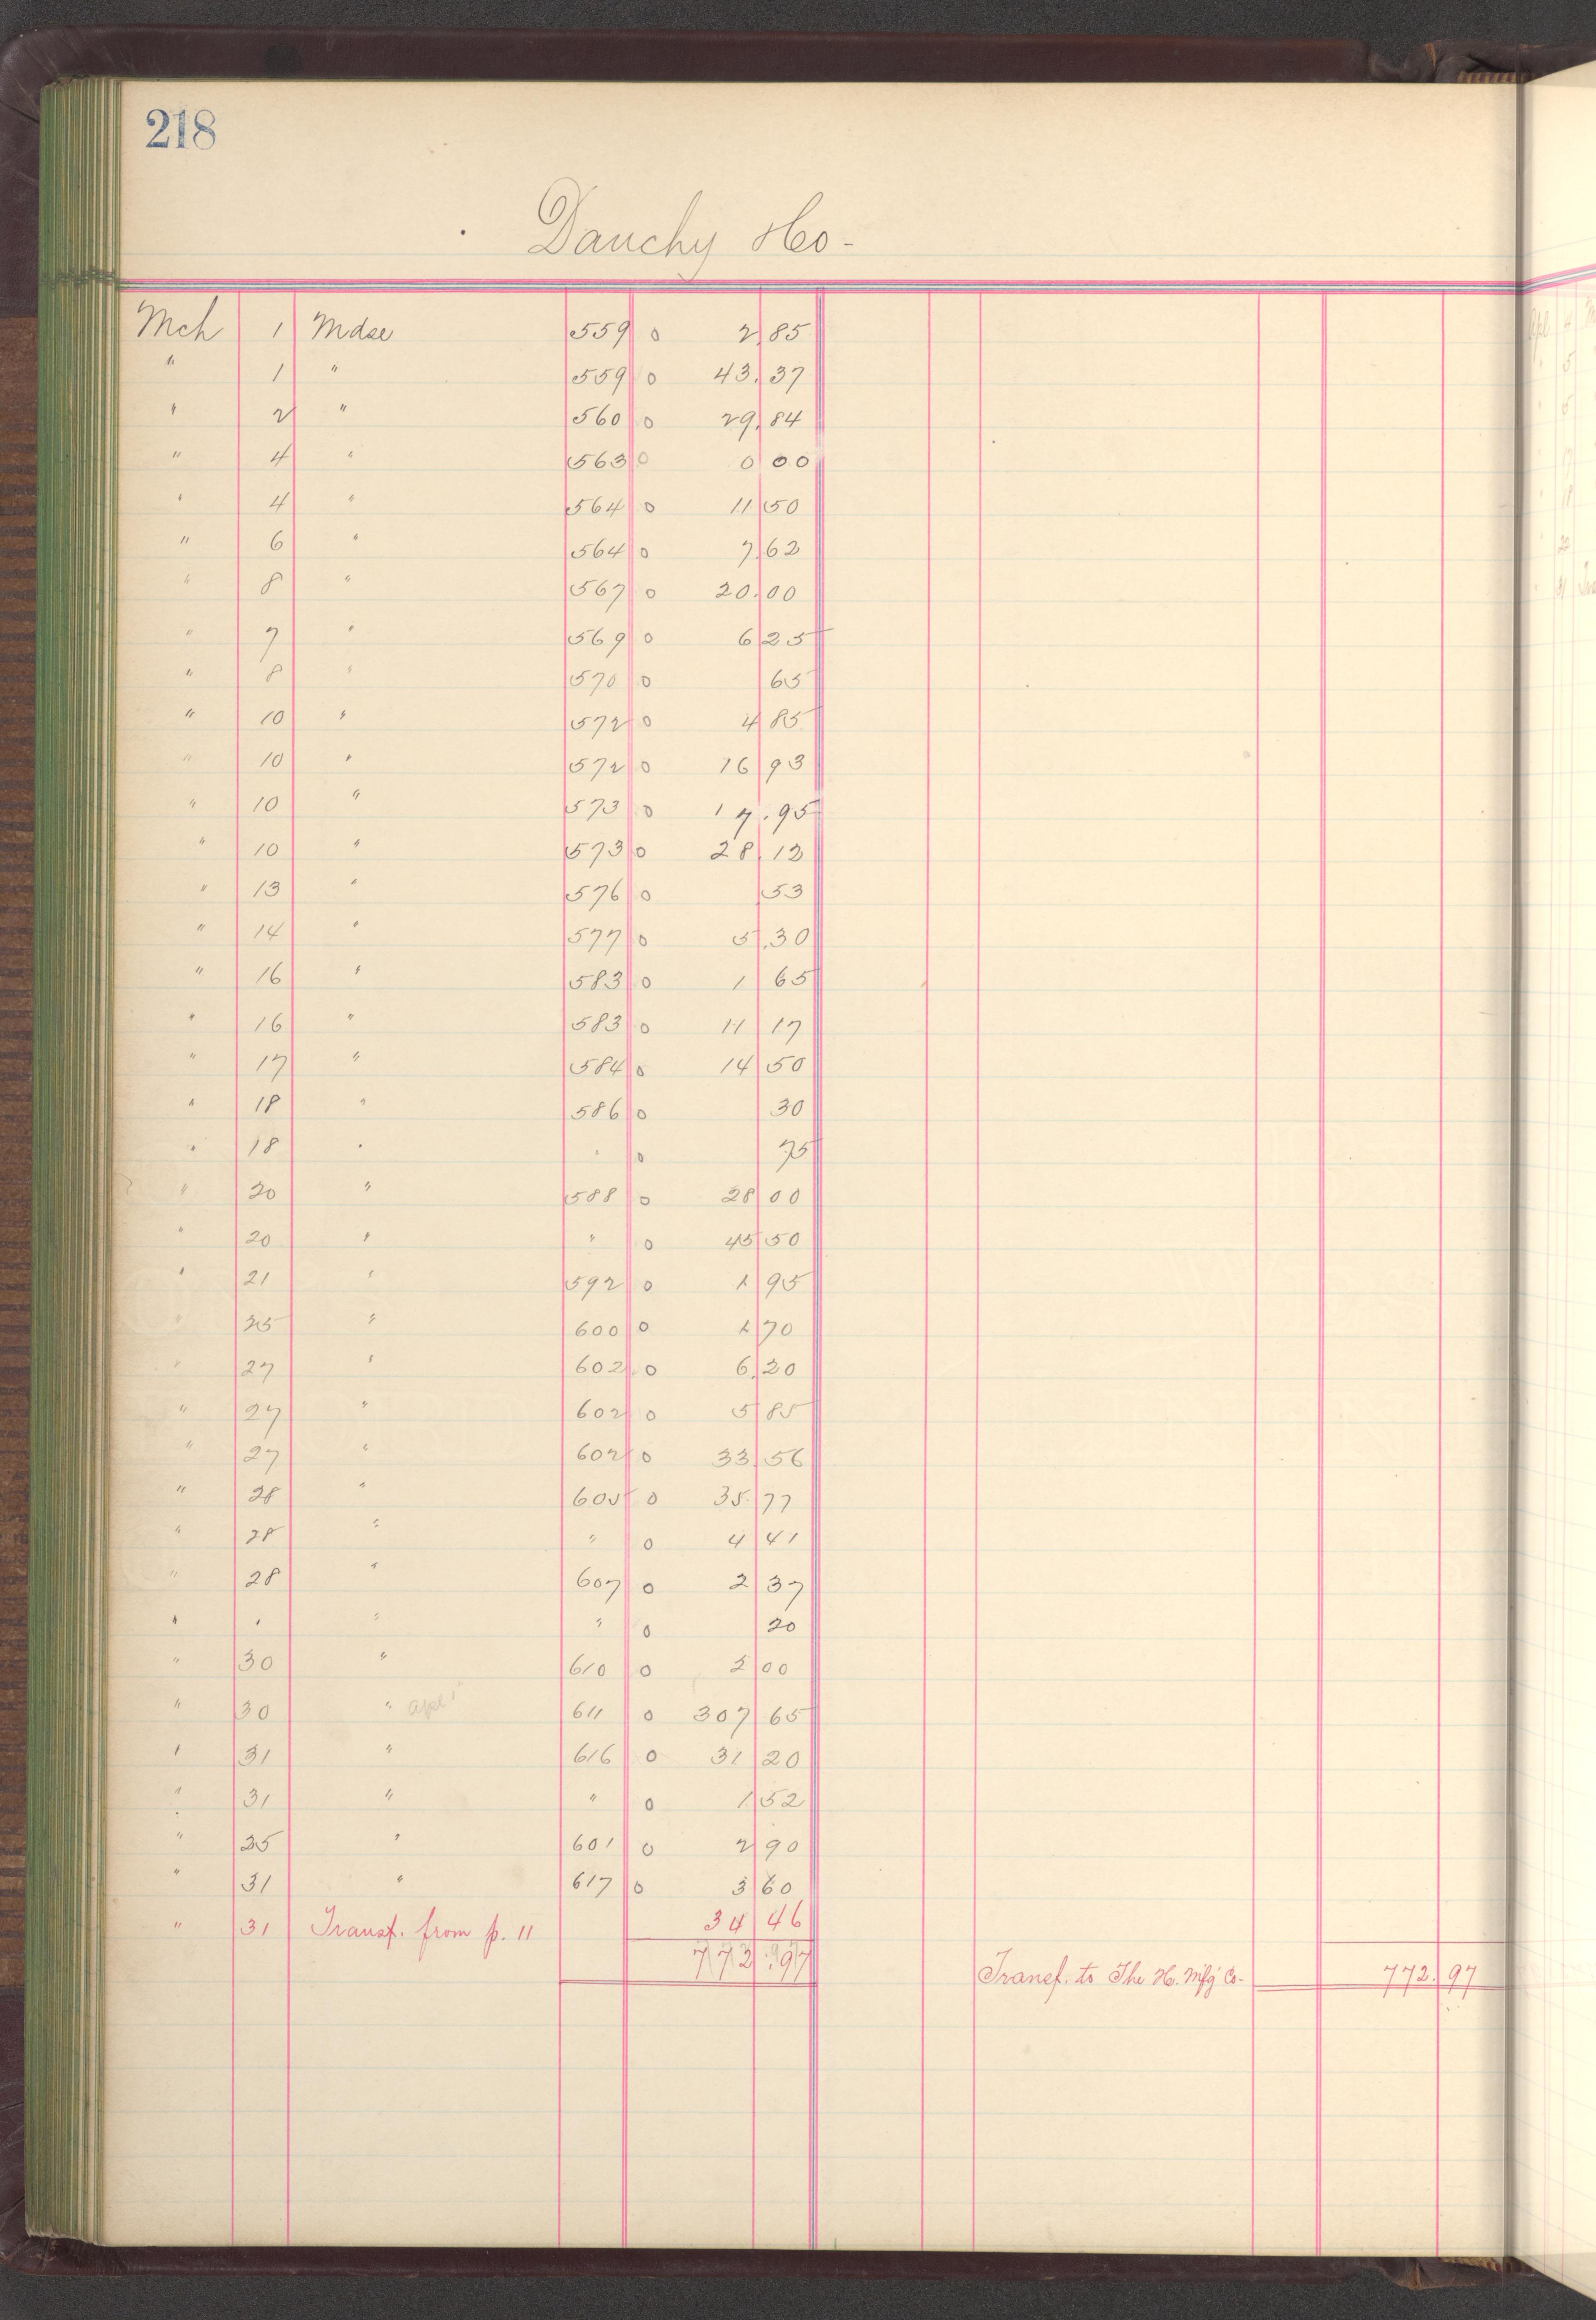 218
Dauchy Co-
Mch 1 Mdse 559 0 2.85
" 1 " 559 0 43.37
" 2 " 560 0 29.84
" 4 " 563 0 0 00
" 4 " 564 0 11 50
" 6 " 564 0 7.62
" 8 " 567 0 20.00
" 7 " 569 0 6 25
" 8 " 570 0 65
" 10 " 572 0 4 85
" 10 " 572 0 16 93
" 10 " 573 0 17.95
" 10 " 573 0 28 12
" 13 " 576 0 53
" 14 " 577 0 5.30
" 16 " 583 0 1 65
" 16 " 583 0 11 17
" 17 " 584 0 14 50
" 18 " 586 0 30
" 18 " " 0 75
" 20 " 588 0 28 00
" 20 " " 0 45 50
" 21 " 592 0 1 95
" 25 " 600 0 1 70
" 27 " 602 0 6.20
" 27 " 602 0 5 85
" 27 " 602 0 33 56
" 28 " 605 0 35.77
" 28 " " 0 4 41
" 28 " 607 0 2 37
" " " " 0 20
" 30 " 610 0 2 00
" 30 " Apl 1 611 0 307 65
" 31 " 616 0 31 20
" 31 " " 0 1 52
" 25 " 601 0 2 90
" 31 " 617 0 3 60
" 31 Transf. from p. 11 34 46
772.97
Transf. to The H. Mfg Co- 772.97
Apl 4 M
5
5
17
18